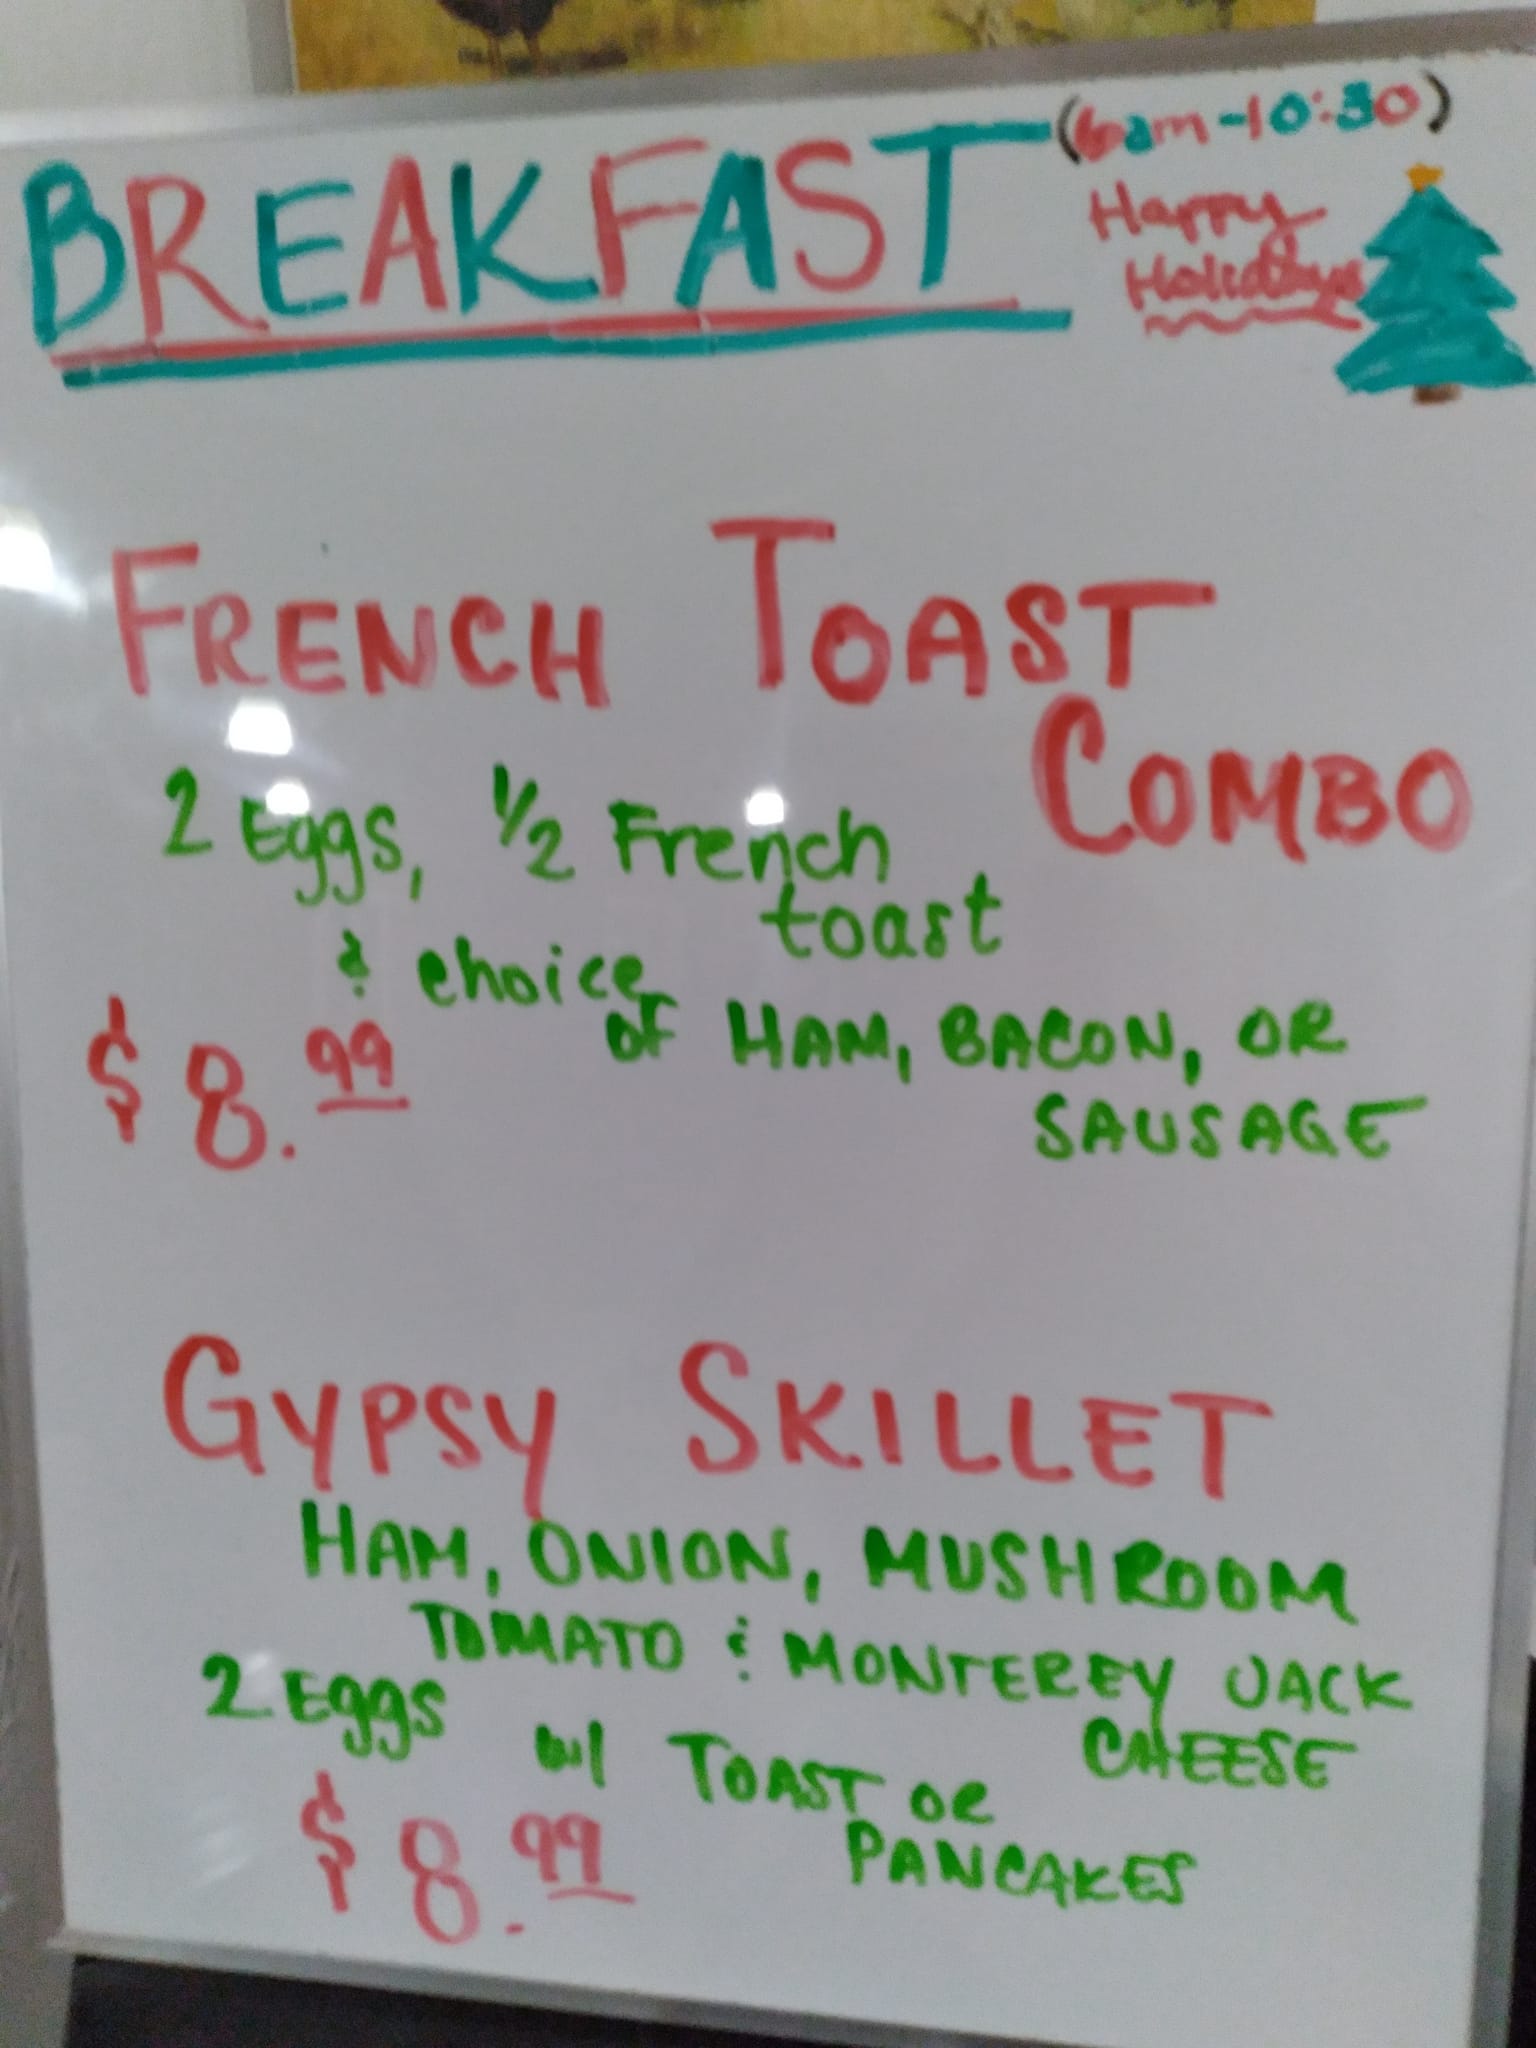 BREAKFAST (6am-10:30)
Happy
Holidays
FRENCH TOAST
COMBO
2 Eggs, 1/2 French
toast
& choice
of HAM, BACON, OR
SAUSAGE
$8.99
GYPSY SKILLET
HAM, ONION, MUSHROOM
TOMATO & MONTEREY JACK
CHEESE
2 Eggs w/ TOAST OR
PANCAKES
$8.99